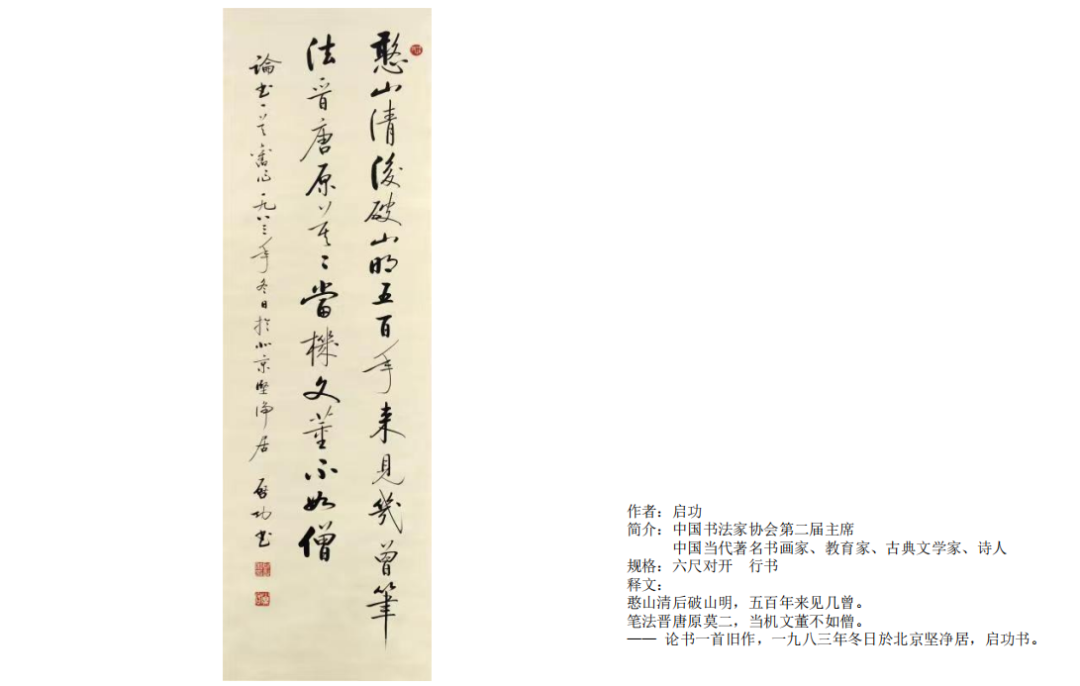 憨山清後破山明五百年来見幾曾筆
法晋唐原莫二當機文董不如僧
論書一首舊作一九八三年冬日於北京堅净居 啓功書
作者：启功
简介：中国书法家协会第二届主席
中国当代著名书画家、教育家、古典文学家、诗人
规格：六尺对开　行书
释文：
憨山清后破山明，五百年来见几曾。
笔法晋唐原莫二，当机文董不如僧。
—— 论书一首旧作，一九八三年冬日於北京坚净居，启功书。